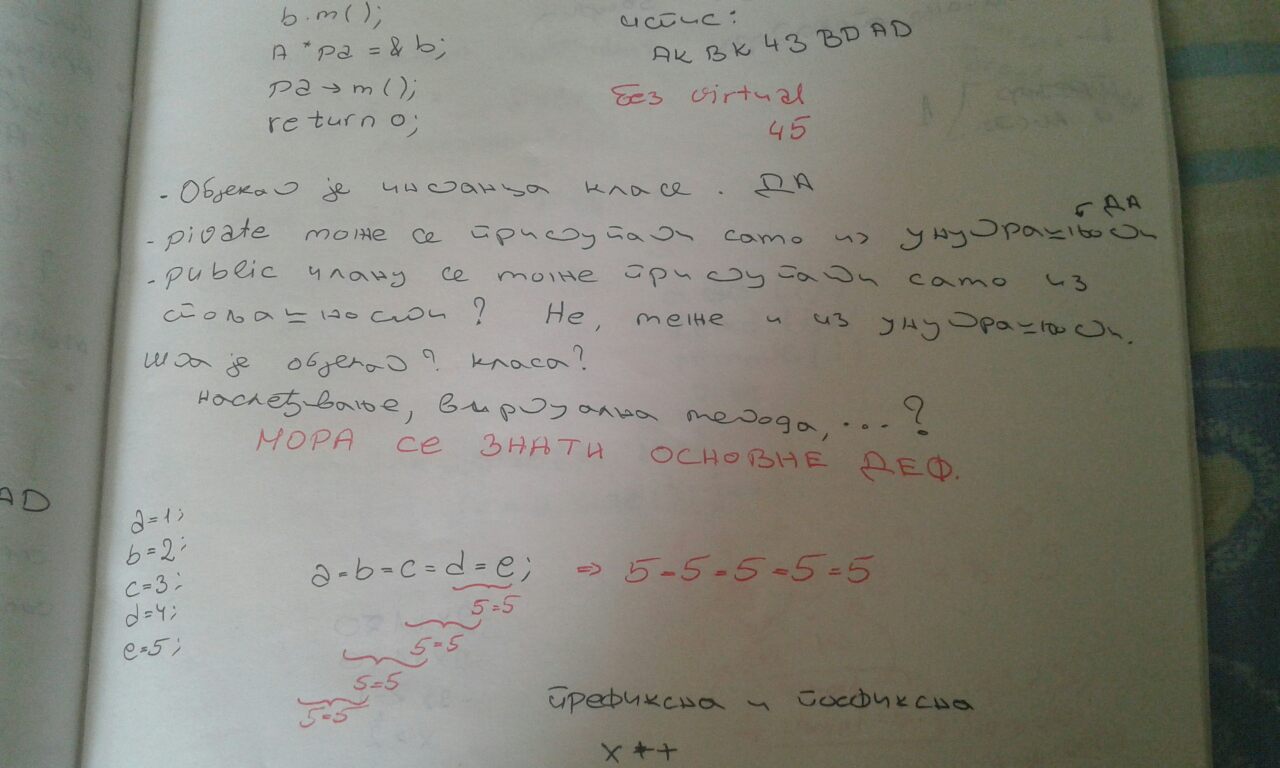 b.m();
A *pa = & b;
pa→m();
return 0;
испис:
AK BK 43 BD AD
без virtual
45
- Објекат је инстанца класе. ДА
- pivate може се приступати само из унутрашњости ДА
- public члану се може приступати само из
спољашности? Не, може и из унутрашњости.
шта је објекат? класа?
наслеђивање, виртуална метода, ...?
МОРА СЕ ЗНАТИ ОСНОВНЕ ДЕФ.
AD
a=1;
b=2;
c=3;
d=4;
e=5;
a=b=c=d=e; => 5=5=5=5=5
5=5
5=5
5=5
5=5
префиксна и постфиксна
x++